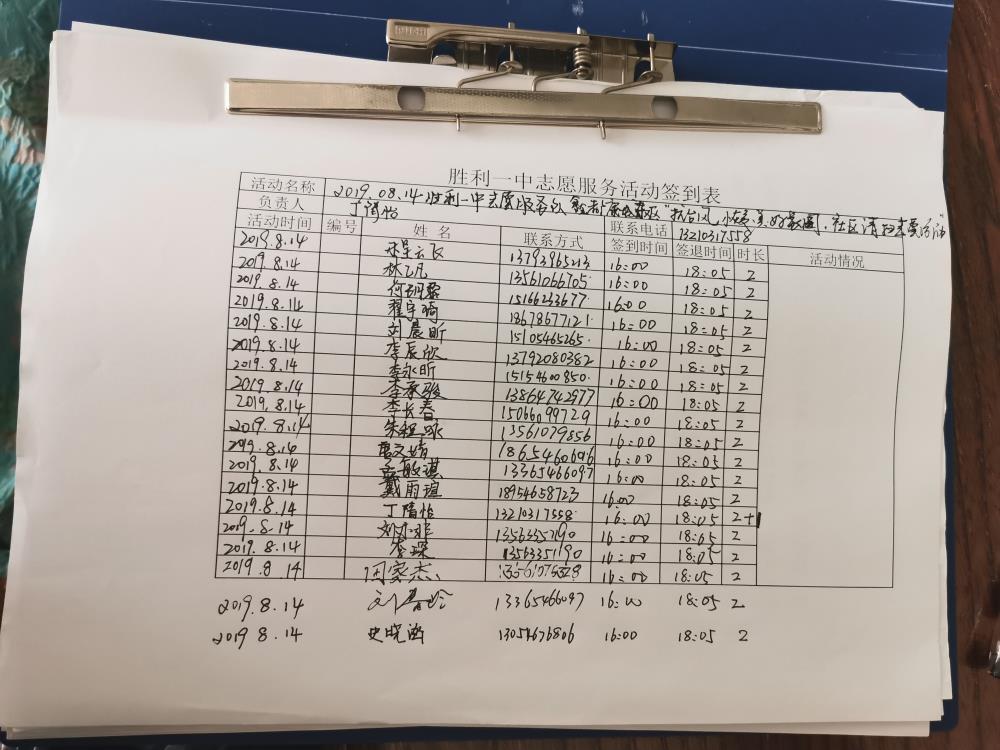 胜利一中志愿服务活动签到表
活动名称 2019.08.14胜利一中志愿服务队 社区 "抗台风, 家园, 社区清扫志愿活动"
负责人 丁隋怡 联系电话 13210317558
活动时间 编号 姓 名 联系方式 签到时间 签退时间 时长 活动情况
2019.8.14 云飞 13793965213 16:00 18:05 2
2019.8.14 林乙凡 13561066705 16:00 18:05 2
2019.8.14 何玥霖 15166233677 16:00 18:05 2
2019.8.14 翟宇琦 18678677121 16:00 18:05 2
2019.8.14 刘晨昕 15105465265 16:00 18:05 2
2019.8.14 李辰欣 13792080382 16:00 18:05 2
2019.8.14 李永昕 15154600850 16:00 18:05 2
2019.8.14 李承骏 13864742977 16:00 18:05 2
2019.8.14 李长春 15066099729 16:00 18:05 2
2019.8.14 朱程 13561079856 16:00 18:05 2
2019.8.14 文婧 18654606096 16:00 18:05 2
2019.8.14 敏琪 13365466097 16:00 18:05 2
2019.8.14 戴雨瑄 18954658723 16:00 18:05 2
2019.8.14 丁隋怡 13210317558 16:00 18:05 2+1
2019.8.14 刘小非 13563355790 16:00 18:05 2
2019.8.14 李琛 13563351190 16:00 18:05 2
2019.8.14 闫家杰 16:00 18:05 2
2019.8.14 刘 13365466097 16:00 18:05 2
2019.8.14 史晓涵 13054676806 16:00 18:05 2